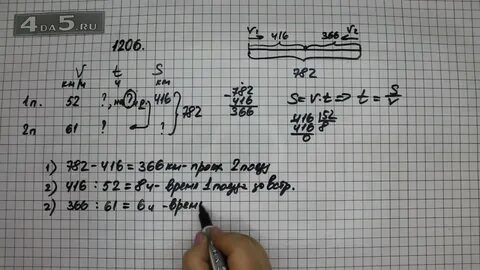 4DA5.RU
1206.
V км/ч t ч S км
1п. 52 ?, 416
2п 61 ? ?
782
V₁ 416 366 V₂
782
782
- 416
366
S = V·t => t = S/V
416 | 52
416 8
0
1) 782 - 416 = 366 км - прош. 2 поезд
2) 416 : 52 = 8 ч - время 1 поезда до встр.
2) 366 : 61 = 6 ч - время